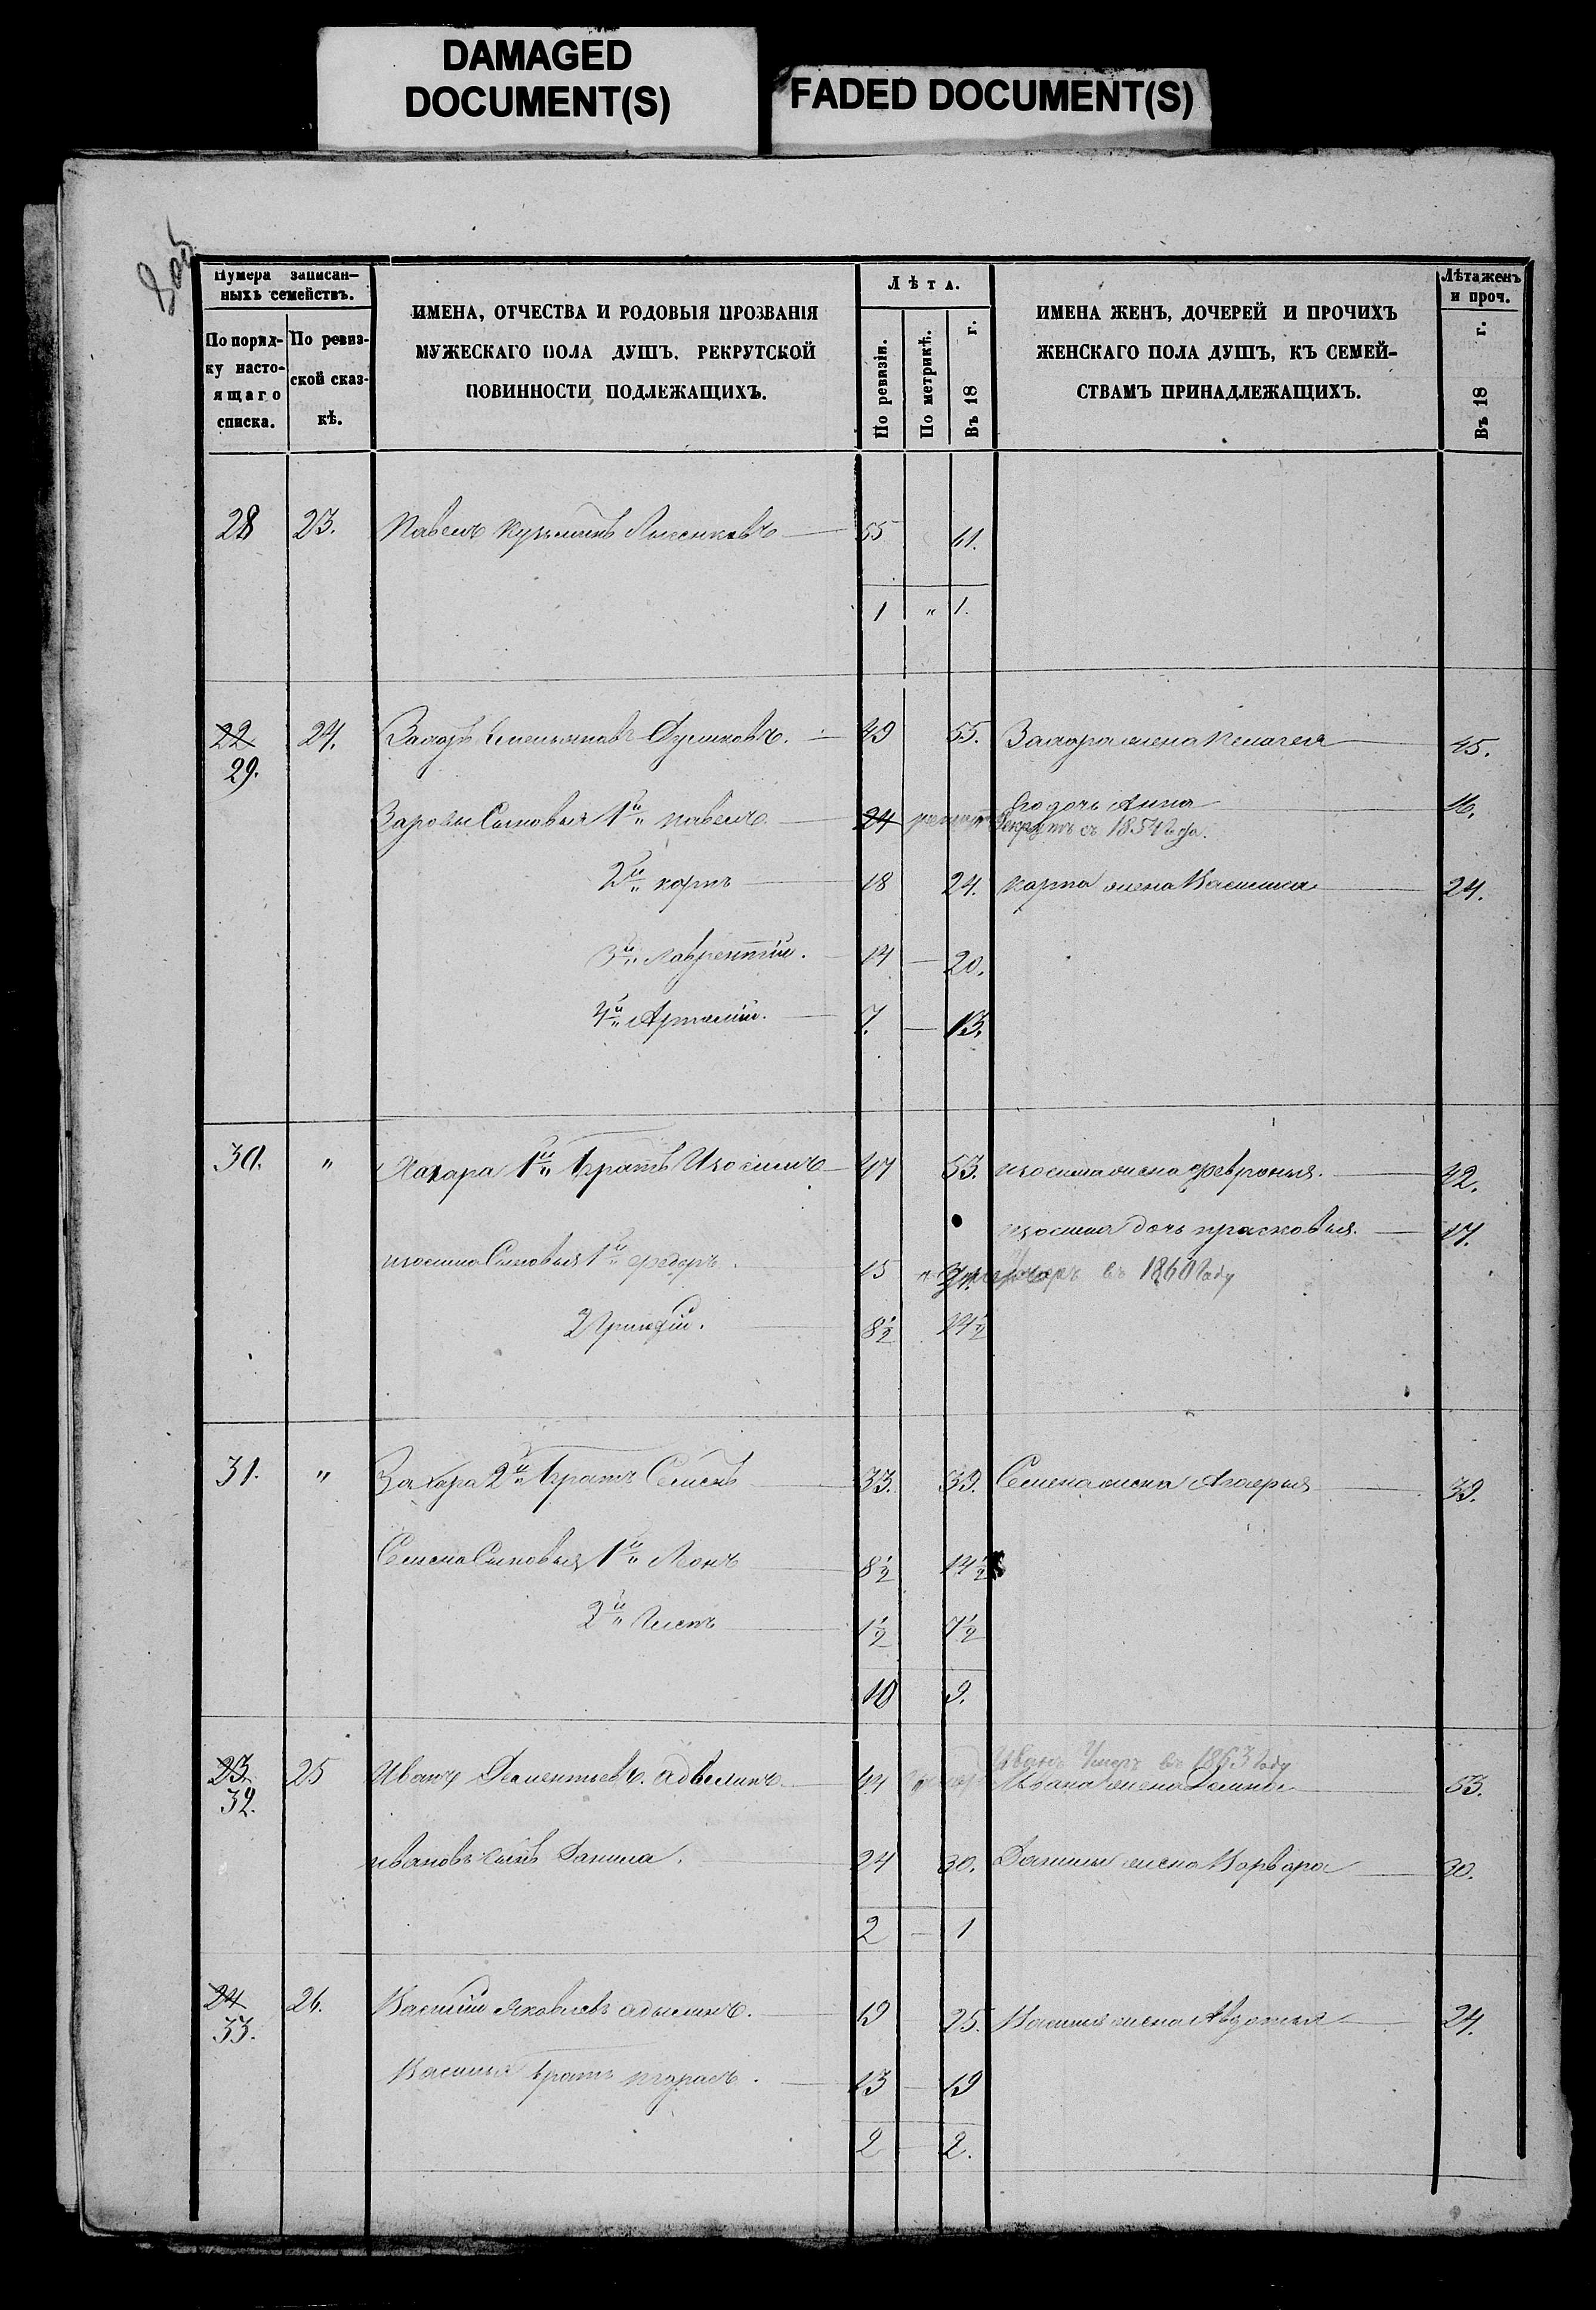 DAMAGED
DOCUMENT(S)
FADED DOCUMENT(S)
Нумера записан-
ныхъ семействъ.
По поряд-
ку насто-
ящаго
списка.
По ревиз-
ской сказ-
кѣ.
ИМЕНА, ОТЧЕСТВА И РОДОВЫЯ ПРОЗВАНІЯ
МУЖЕСКАГО ПОЛА ДУШЪ, РЕКРУТСКОЙ
ПОВИННОСТИ ПОДЛЕЖАЩИХЪ.
Лѣта.
По ревизіи.
По метрикѣ.
Въ 18 г.
ИМЕНА ЖЕНЪ, ДОЧЕРЕЙ И ПРОЧИХЪ
ЖЕНСКАГО ПОЛА ДУШЪ, КЪ СЕМЕЙ-
СТВАМЪ ПРИНАДЛЕЖАЩИХЪ.
Лѣта женъ
и проч.
Въ 18 г.
28 23. Павелъ Кузьминъ 55 61.
1 " 1.
22 24. Захаръ Емельяновъ 49 55. Захара жена Пелагея 45.
29.
Его дочь Анна 16.
Сыновья 1й Павелъ 24 Рекрутъ съ 1854 года.
2й Карпъ 18 24. Карпа жена Василиса 24.
3й Лаврентій. 14 — 20.
4й Артемій. 7. — 13.
30. " Захара 1й братъ Изосимъ 47 53. Изосима жена Февронья. 42.
Изосима дочь Прасковья. 17.
Изосима Сыновья 1й Федоръ. 15 умеръ въ 1860 году
2 8½ 14½
31. " Захара 2й братъ Семенъ 33. 39. Семена жена 39.
Семена Сыновья 1й 8½ 14½
2й 1½ 7½
10 9.
Иванъ Умеръ въ 1863 году
23. 25 Иванъ Дементьевъ 44 Ивана жена 53.
32.
Ивановъ сынъ Данила. 24 30. Данилы жена Варвара 30.
2 — 1
24 26. Василій Яковлевъ 19 25. Василья жена Авдотья 24.
33.
Василья братъ 13 — 19
2 2.